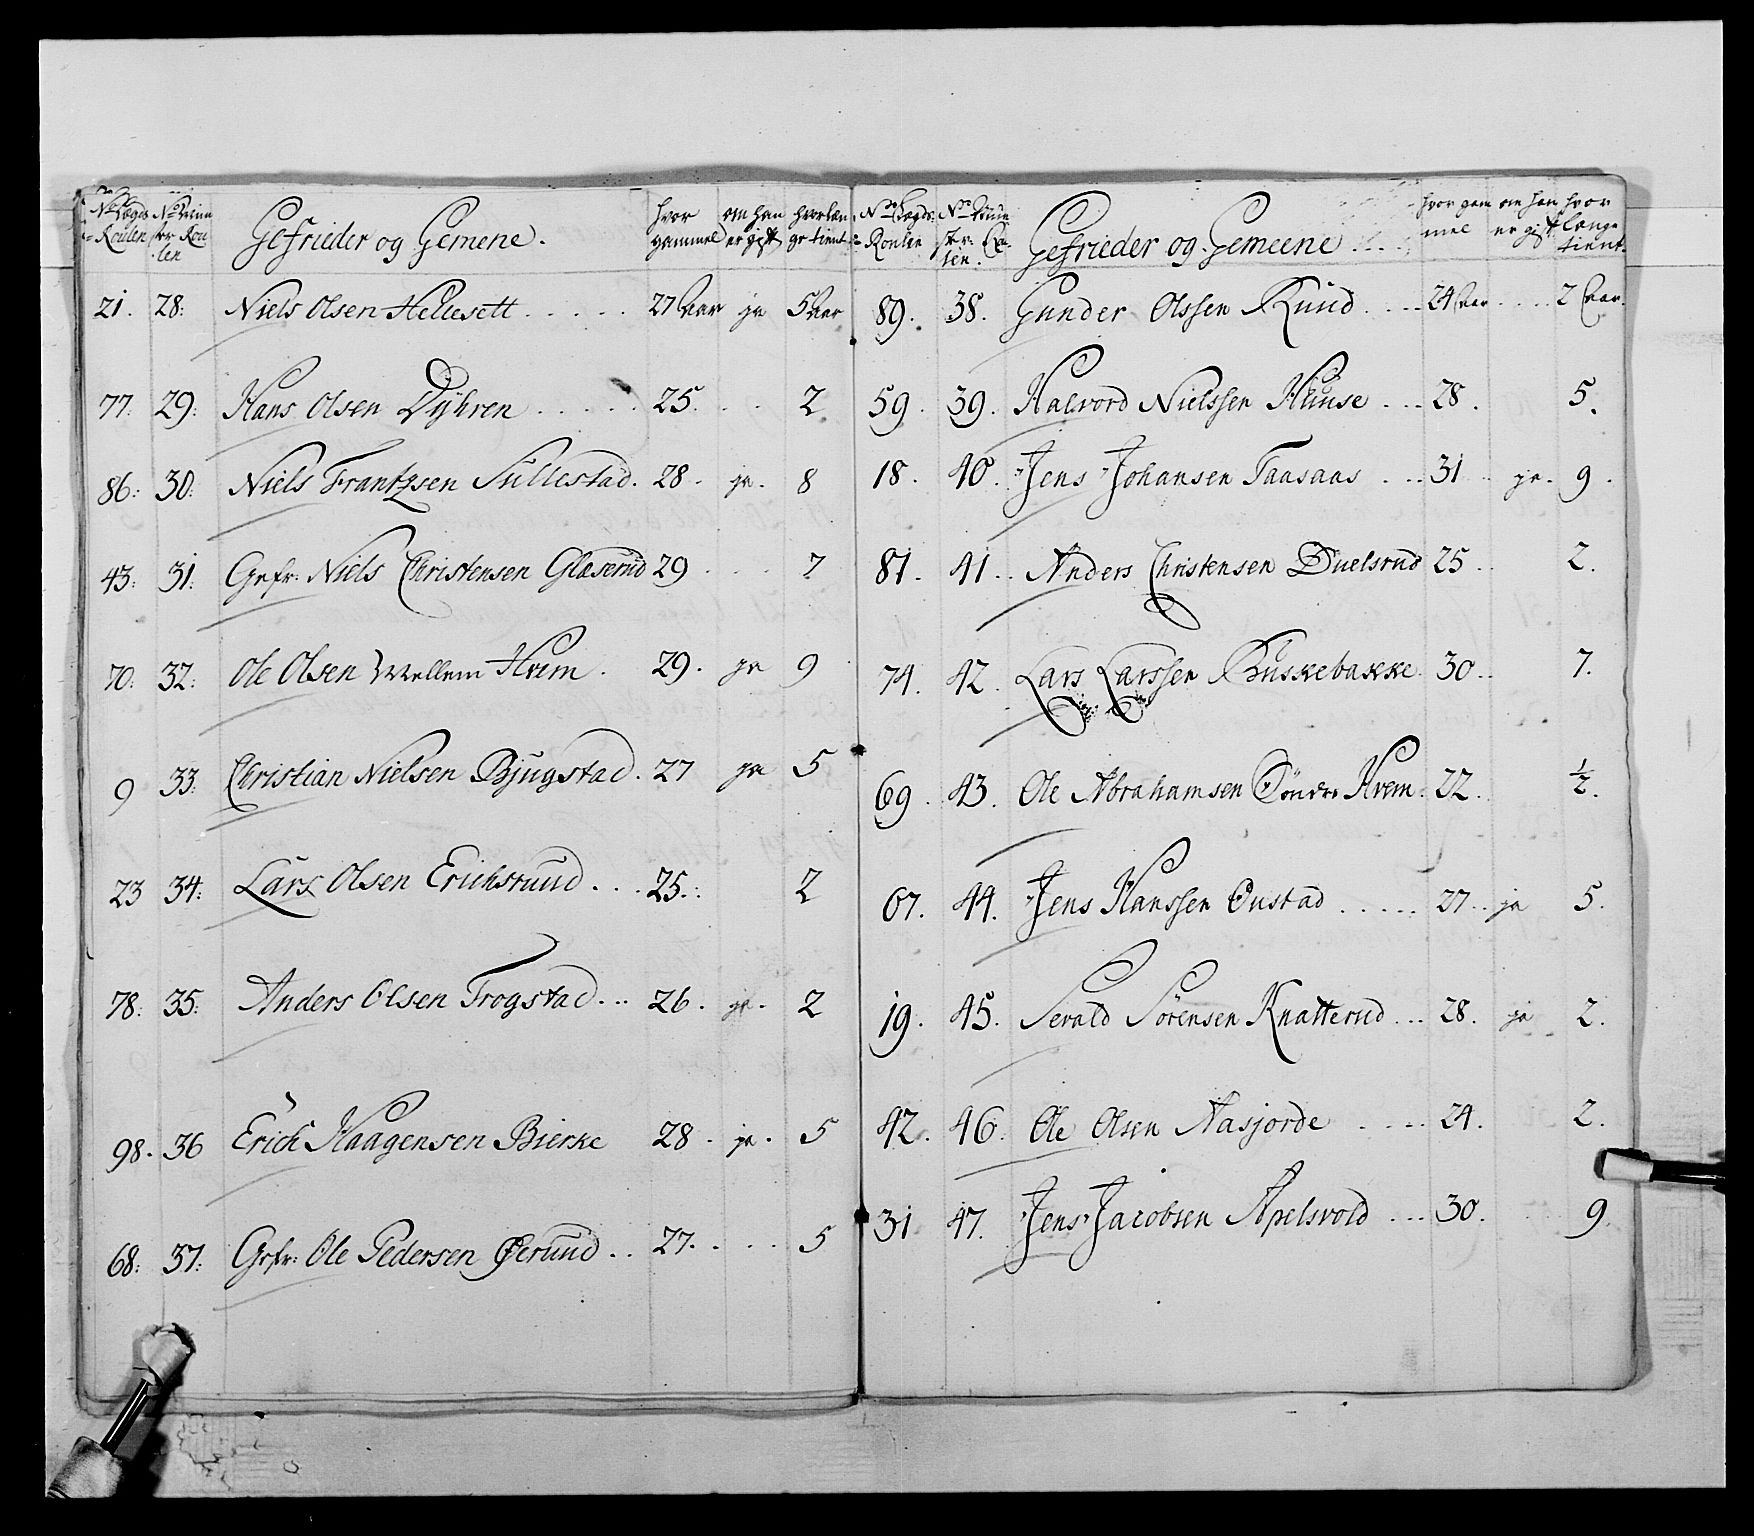 No Lægds Roulen No Mün ster Rou len Gefrieder og Gemene. hvor gammel om han er gift hvorlæn ge tient
21. 28: Niels Olsen Hellesett ..... 27 Aar ja 5 Aar
77. 29: Hans Olsen Dÿhren ..... 25. .. 2
86: 30: Niels Frantzsen Sullestad. 28. ja. 8
43: 31: Gefr: Niels Christensen Glaserud 29 ... 7
70: 32: Ole Olsen Mellem Hvem. 29. ja 9
9 33: Christian Nielsen Bjugstad. 27 ja 5
23 34: Lars Olsen Erichsruud ... 25.: 2
78: 35: Anders Olsen Trogstad ... 26. ja. 2
98. 36 Erich Haagensen Bierke 28. ja. 5
68: 37: Gefr: Ole Pedersen Øeruud .. 27. ... 5
No Lægds Roulen No Mün ster Rou len. Gefrieder og Gemeene ... hvor gam mel om han er gift hvor længe tient.
89. 38. Gunder Olssen Ruud .... 24 Aar .... 2 Aar.
59. 39. Halvord Nielssen Huuse ... 28. 5.
18. 40. Jens Johansen Taasaas ... 31 .. ja. 9.
81. 41.. Anders Christensen Duelsrud 25 .. 2.
74. 42. Lars Larssen Buskebakke. 30.. 7.
69. 43. Ole Abrahamsen Søndre Hvem. 22. ½.
67. 44. Jens Hanssen Onstad ..... 27.. ja 5.
19. 45. Sevald Sørensen Knatterud ... 28. ja 2.
42. 46. Ole Olsen Aasjorde .... 24. 2.
31 47. Jens Jacobsen Apelsvold ... 30. 9